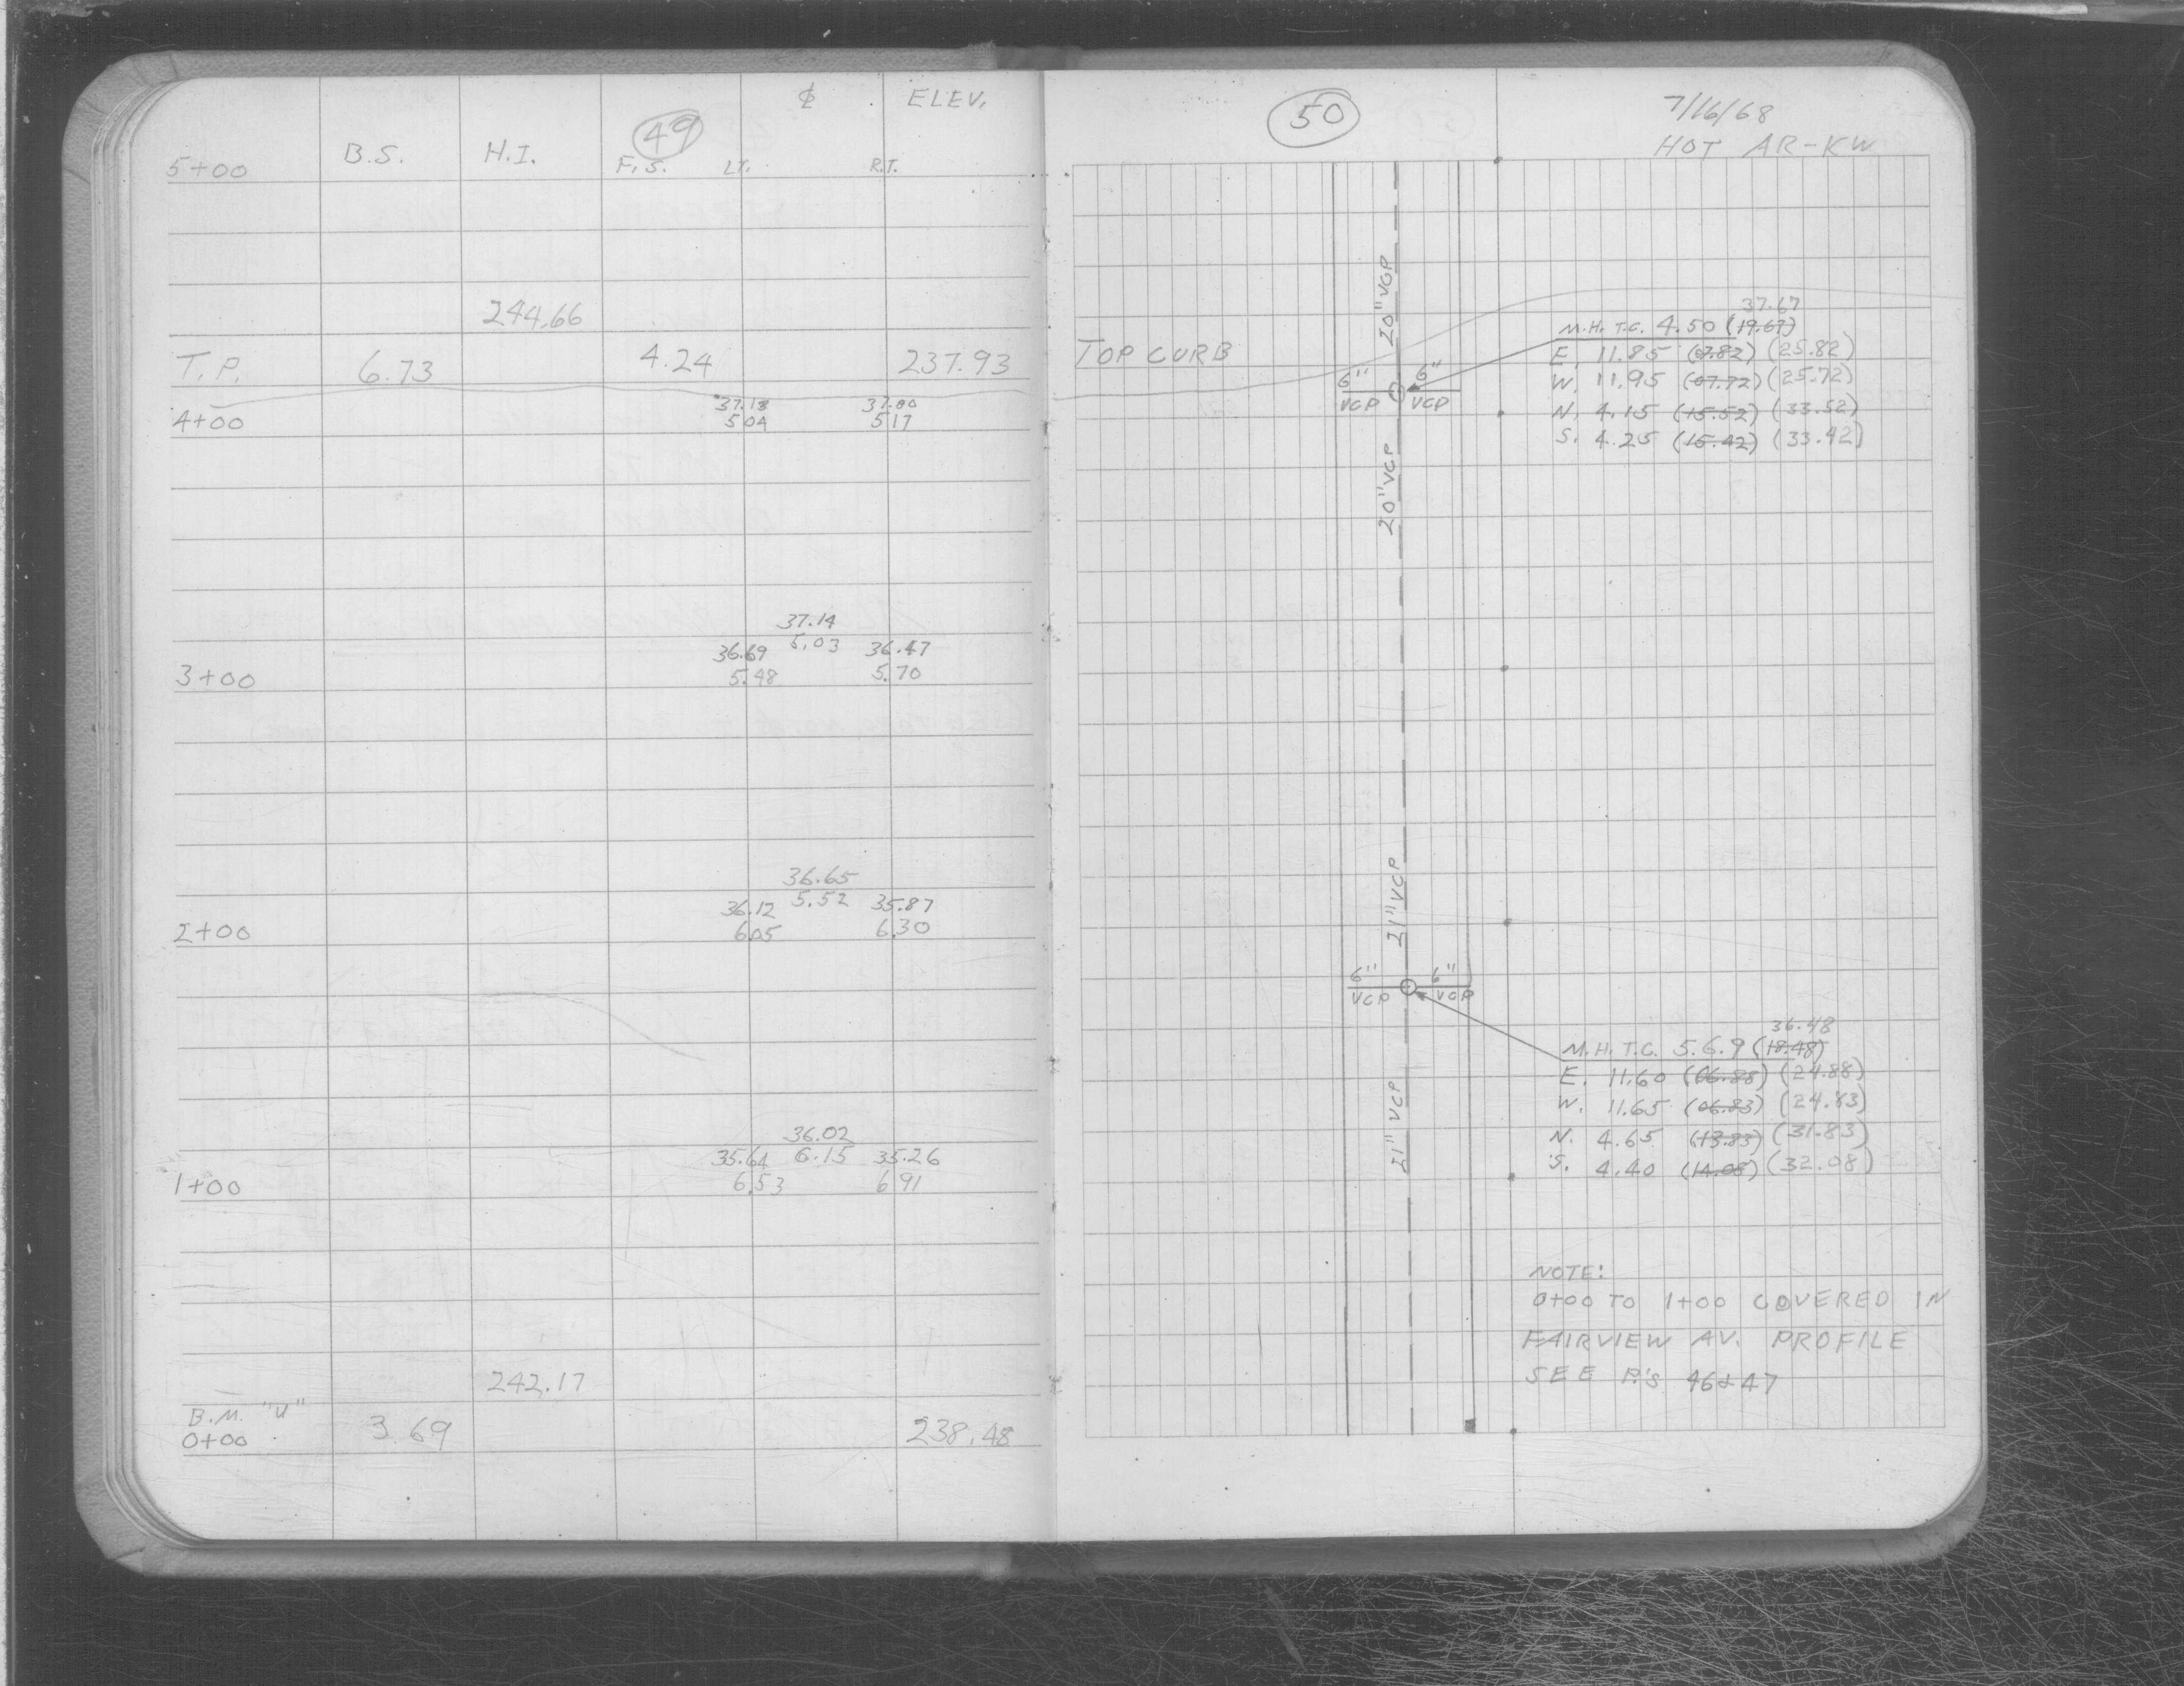 ₵ ELEV.
49
B.S. H.I. F.S. LT. R.T.
5+00
244.66
T.P. 6.73 4.24 237.93
37.13 37.00
4+00 5 04 5 17
37.14
36.69 5.03 36.47
3+00 5.48 5.70
36.65
36.12 5.52 35.87
2+00 6.05 6.30
36.02
35.64 6.15 35.26
1+00 6.53 6 91
242.17
B.M. "U"
0+00 3.69 238.48
50
7/16/68
HOT AR-KW
20" VCP
37.67
M.H. T.C. 4.50 (19.67)
TOP CURB
E. 11.85 (07.82) (25.82)
W. 11.95 (07.72) (25.72)
N. 4.15 (15.52) (33.52)
S. 4.25 (15.42) (33.42)
6" 6"
VCP VCP
20" VCP
21" VCP
6" 6"
VCP VCP
36.48
M.H. T.C. 5.69 (18.48)
E. 11.60 (06.88) (24.88)
W. 11.65 (06.83) (24.83)
N. 4.65 (13.83) (31.83)
S. 4.40 (14.08) (32.08)
21" VCP
NOTE:
0+00 TO 1+00 COVERED IN
FAIRVIEW AV. PROFILE
SEE P.'S 46&47